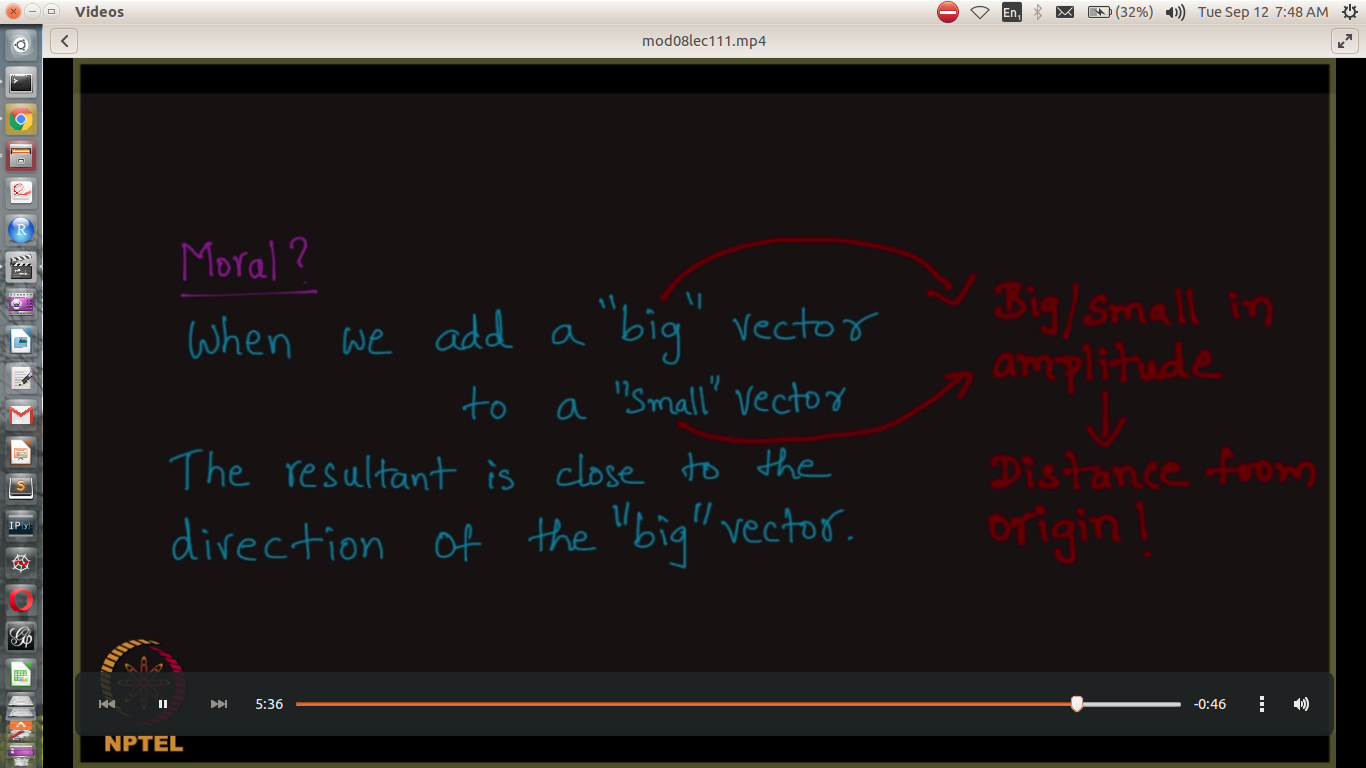 Videos
En1
(32%)
Tue Sep 12 7:48 AM
mod08lec111.mp4
Moral?
When we add a "big" vector
to a "small" vector
The resultant is close to the
direction of the "big" vector.
Big/small in
amplitude
Distance from
origin!
5:36
-0:46
NPTEL
R
S
IP[y]: